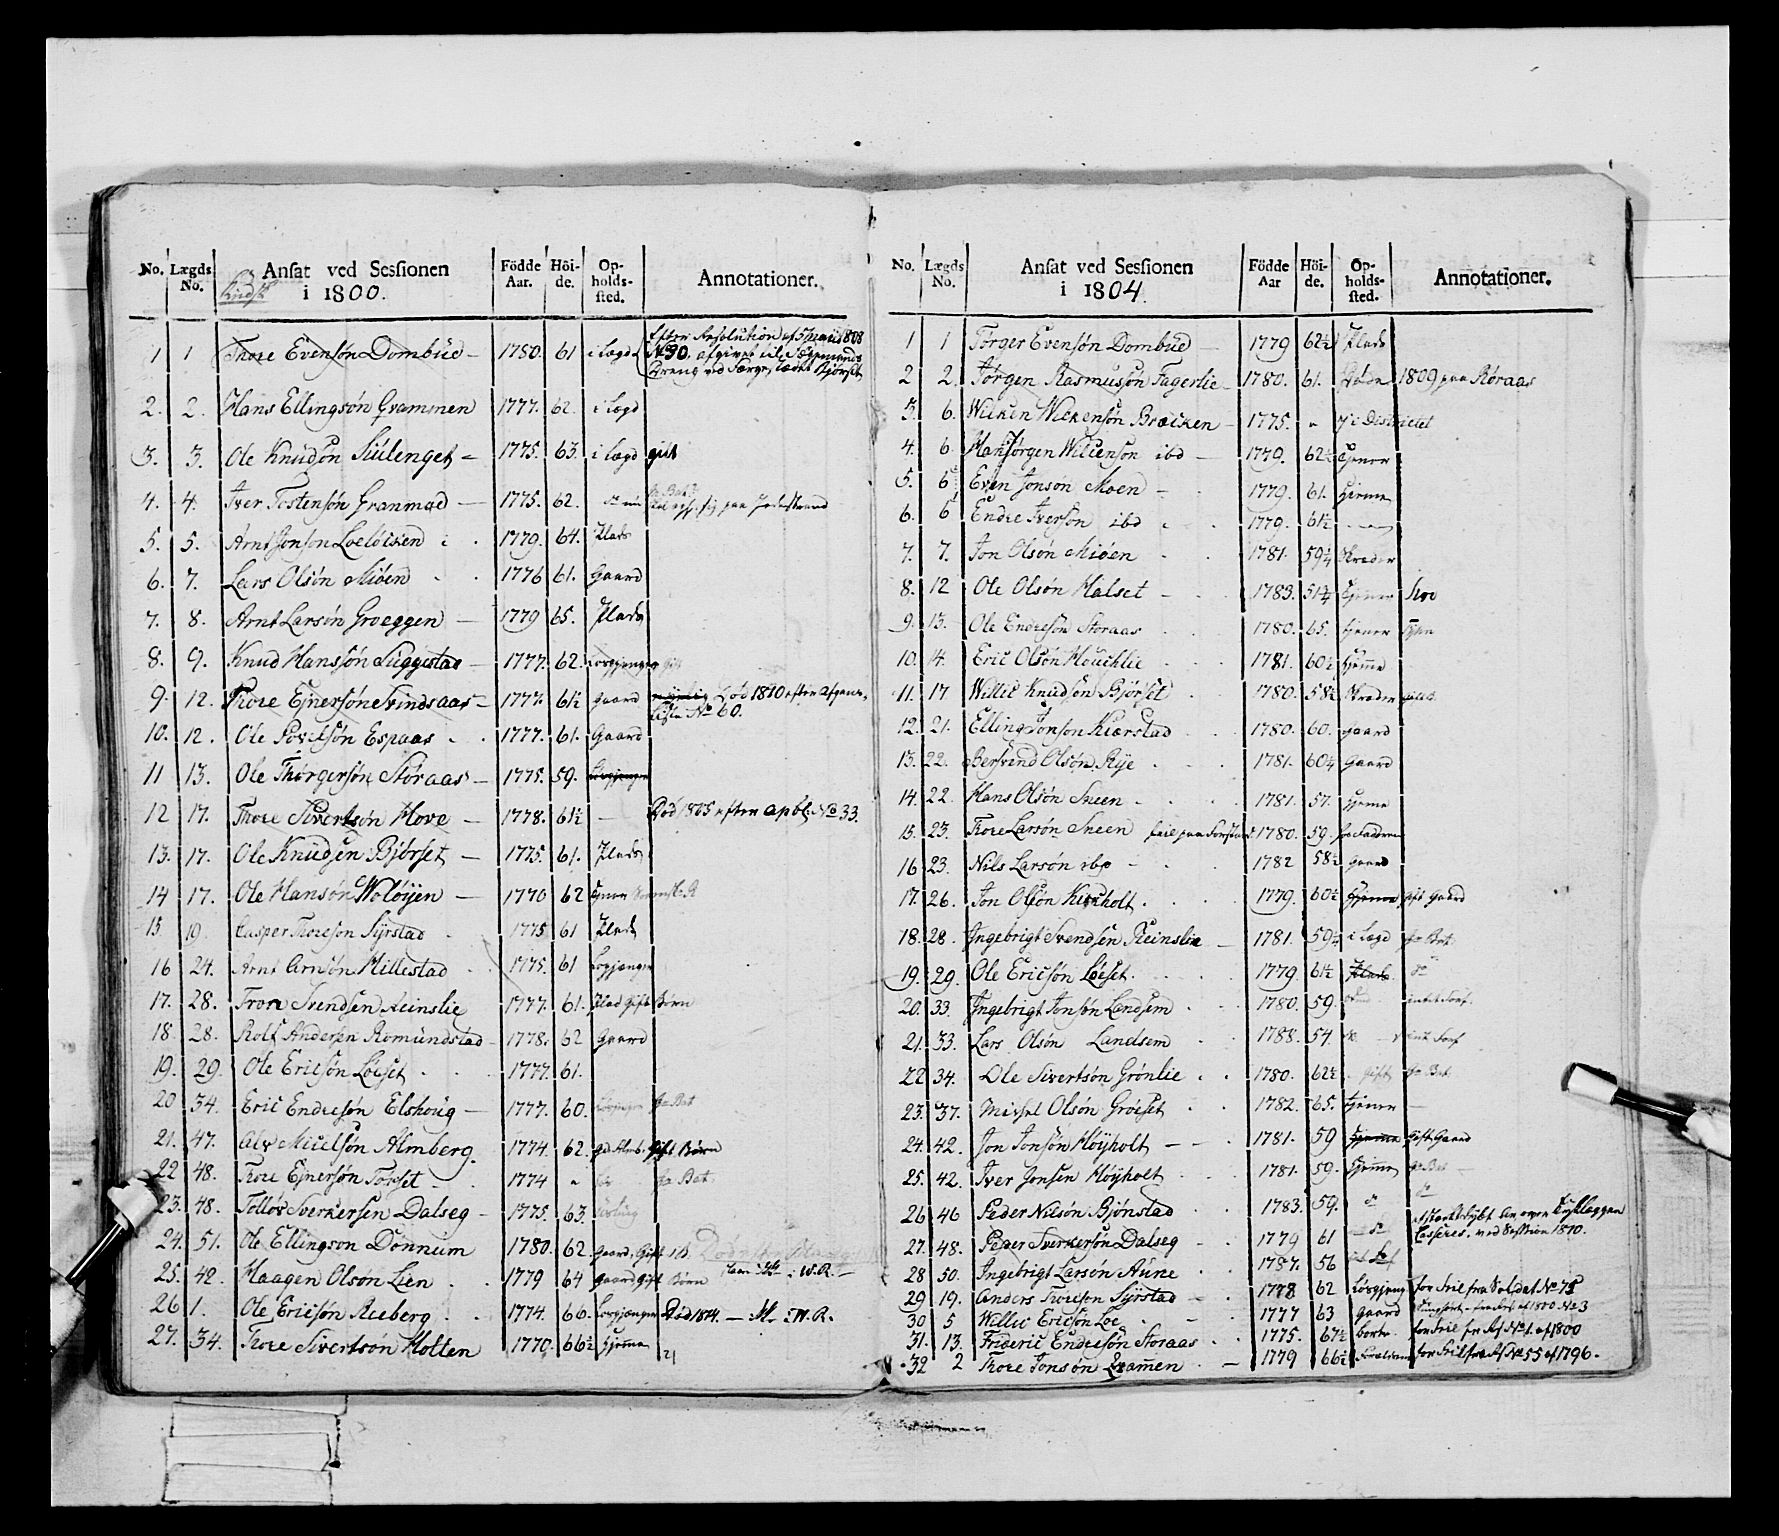 No. Lægds No. Ansat ved Sessionen i 1800. Födde Aar. Höide. Opholdssted. Annotationer.
1 1 Thore Evensøn Dombüe - 1780. 61 i Lægd Efter Resolution af 1808
No 90. afgivet til
2. 2. Hans Ellingsøn Grammen 1777. 62. i Lægd
3. 3. Ole Knudsøn Siülenget - 1775. 63. i Lægd gift
4. 4. Iver Tostensøn Granmoe - 1775. 62.
5. 5. Arnt Jonson Loeløcken 1779. 64. Plads
6. 7. Lars Olsøn Miöen 1776 61. Gaard
7. 8. Arnt Larsøn Groeggen - 1779 65. Plads
8. 9. Knud Hanssøn Süggestad - 1777. 62. Losgjenger gift
9. 12. Thore Ejnersøn Svindsaas - 1777. 61½ Gaard Død 1810 efter Afgans-
Liste No 60.
10. 12. Ole Povelsøn Espaas 1777. 61. Gaard
11 13. Ole Thørgersøn Storaas - 1775. 59. Losgjenger
12 17. Thore Sivertsøn Hove - 1778. 61½ - Død 1805 efter apbl. No 33.
13. 17. Ole Knüdsen Bjørset - 1775. 61. Plads
14 17. Ole Hansøn Woløyen - 1770 62 tjener
15 19. Casper Thoresøn Syrstad 1775 61 Plads
16 24. Arnt Arnsøn Hillestad 1775. 61 Losgjenger
17. 28. Tron Svendsen Reinslie 1777. 61. Plads Gift Børn
18 28. Rolf Andersen Romündstad - 1778. 62 Gaard
19. 29. Ole Ericsøn Löeset 1777. 61.
20 34. Eric Endresøn Elshoüg - 1777. 60. Losgjenger Ja Bat
21. 47. Miclsøn Almberg. 1774. 62. Gift Børn
22 48. Thore Ejnersøn Torset 1774 Ja Bat
23. 48. Sverkersen Dalseg - 1775. 63.
24. 51. Ole Ellingson Donnium 1780. 62. Gaard, Gift
25. 42. Haagen Olsøn Lien 1779 64 Gaard Gift Børn
26 1. Ole Ericsøn Reeberg 1774. 60. Losgjenger Død 1814. - W. R.
27. 34. Thore Sivertsøn Holten 1770. 66½ hjemme
No. Lægds No. Ansat ved Sessionen i 1804. Födde Aar Höide. Opholdssted. Annotationer.
1 1 Tørger Evensøn Dombüe - 1779 62½ Plads
2 2. Jørgen Rasmussøn Fagerlie - 1780. 61. Døde 1809 paa Röraas
3. 6. Wilken Wilkensøn Bræcken - 1775. i Districtet
4. 6. Hans Jørgen Wilkensøn ibd - 1779. 62½ Tjener
5. 6 Even Jonson Moen - 1779. 61. Hjeme
6. 6 Endre Iversøn ibd 1779. 61½
7. 7. Jon Olsøn Miöen 1781. 59¼ Skræder
8. 12 Ole Olsøn Halset - 1783. 51¾ Tjener
9. 13. Ole Endresøn Storaas 1780. 65. tjener
10. 14. Eric Olsøn Houchlie 1781. 60½ hjeme
11. 17 Willie Knudsen Bjørset 1780. 58½ Skræder
12. 21. Elling Jonson Kiærstad 1780. 60. gaard
13. 22. Bersvend Olsøn Rye 1781. 60¼ Gaard
14. 22. Hans Olsøn Sneen 1781. 57. hjeme
15. 23. Thore Larsøn Sneen feil paa Forstand 1780. 59.
16 23. Nils Larsøn ibd 1782 58½ Gaard
17. 26. Jon Olsøn Kirkholt 1779. 60½ hjeme gift Gaard
18. 28. Ingebrigt Svendsen Reinslie - 1781. 59½ i Lægd Ja Bat.
19. 29. Ole Ericsøn Löeset 1779 61½ Plads do
20. 33. Ingebrigt Jonsøn Landsem 1780. 59.
21. 33. Lars Olsøn Landsem 1788. 54.
22 34. Ole Sivertsøn Grönlie 1780. 62½ gift Ja Bat.
23. 37. Michel Olsøn Gröeset 1782. 65. tjener
24. 42. Jon Jonsøn Høyholt - 1781. 59 hjeme Gift Gaard
25. 42. Iver Jonsen Høyholt 1781. 59. Hjeme
26 46 Peder Nilsøn Bjønstad 1783. 59. do
27. 48. Peder Sverkersøn Dalseg - 1779 61 Casseres. ved Session 1810.
28 50. Ingebrigt Larsøn Aüne 1787. 56
29 19. Anders Thoresøn Syrstad - 1778 62 Losgjeng for feil fra Soldat No 75
30 5 Willie Ericsøn Loe 1777 63 Gaard
31. 13. Frideric Endresøn Storaas 1775. 67½ borte for feil fr No 1. af 1800
32 2 Thore Jonsøn Gramen - 1779 66½ for feil fra No 55 af 1796.